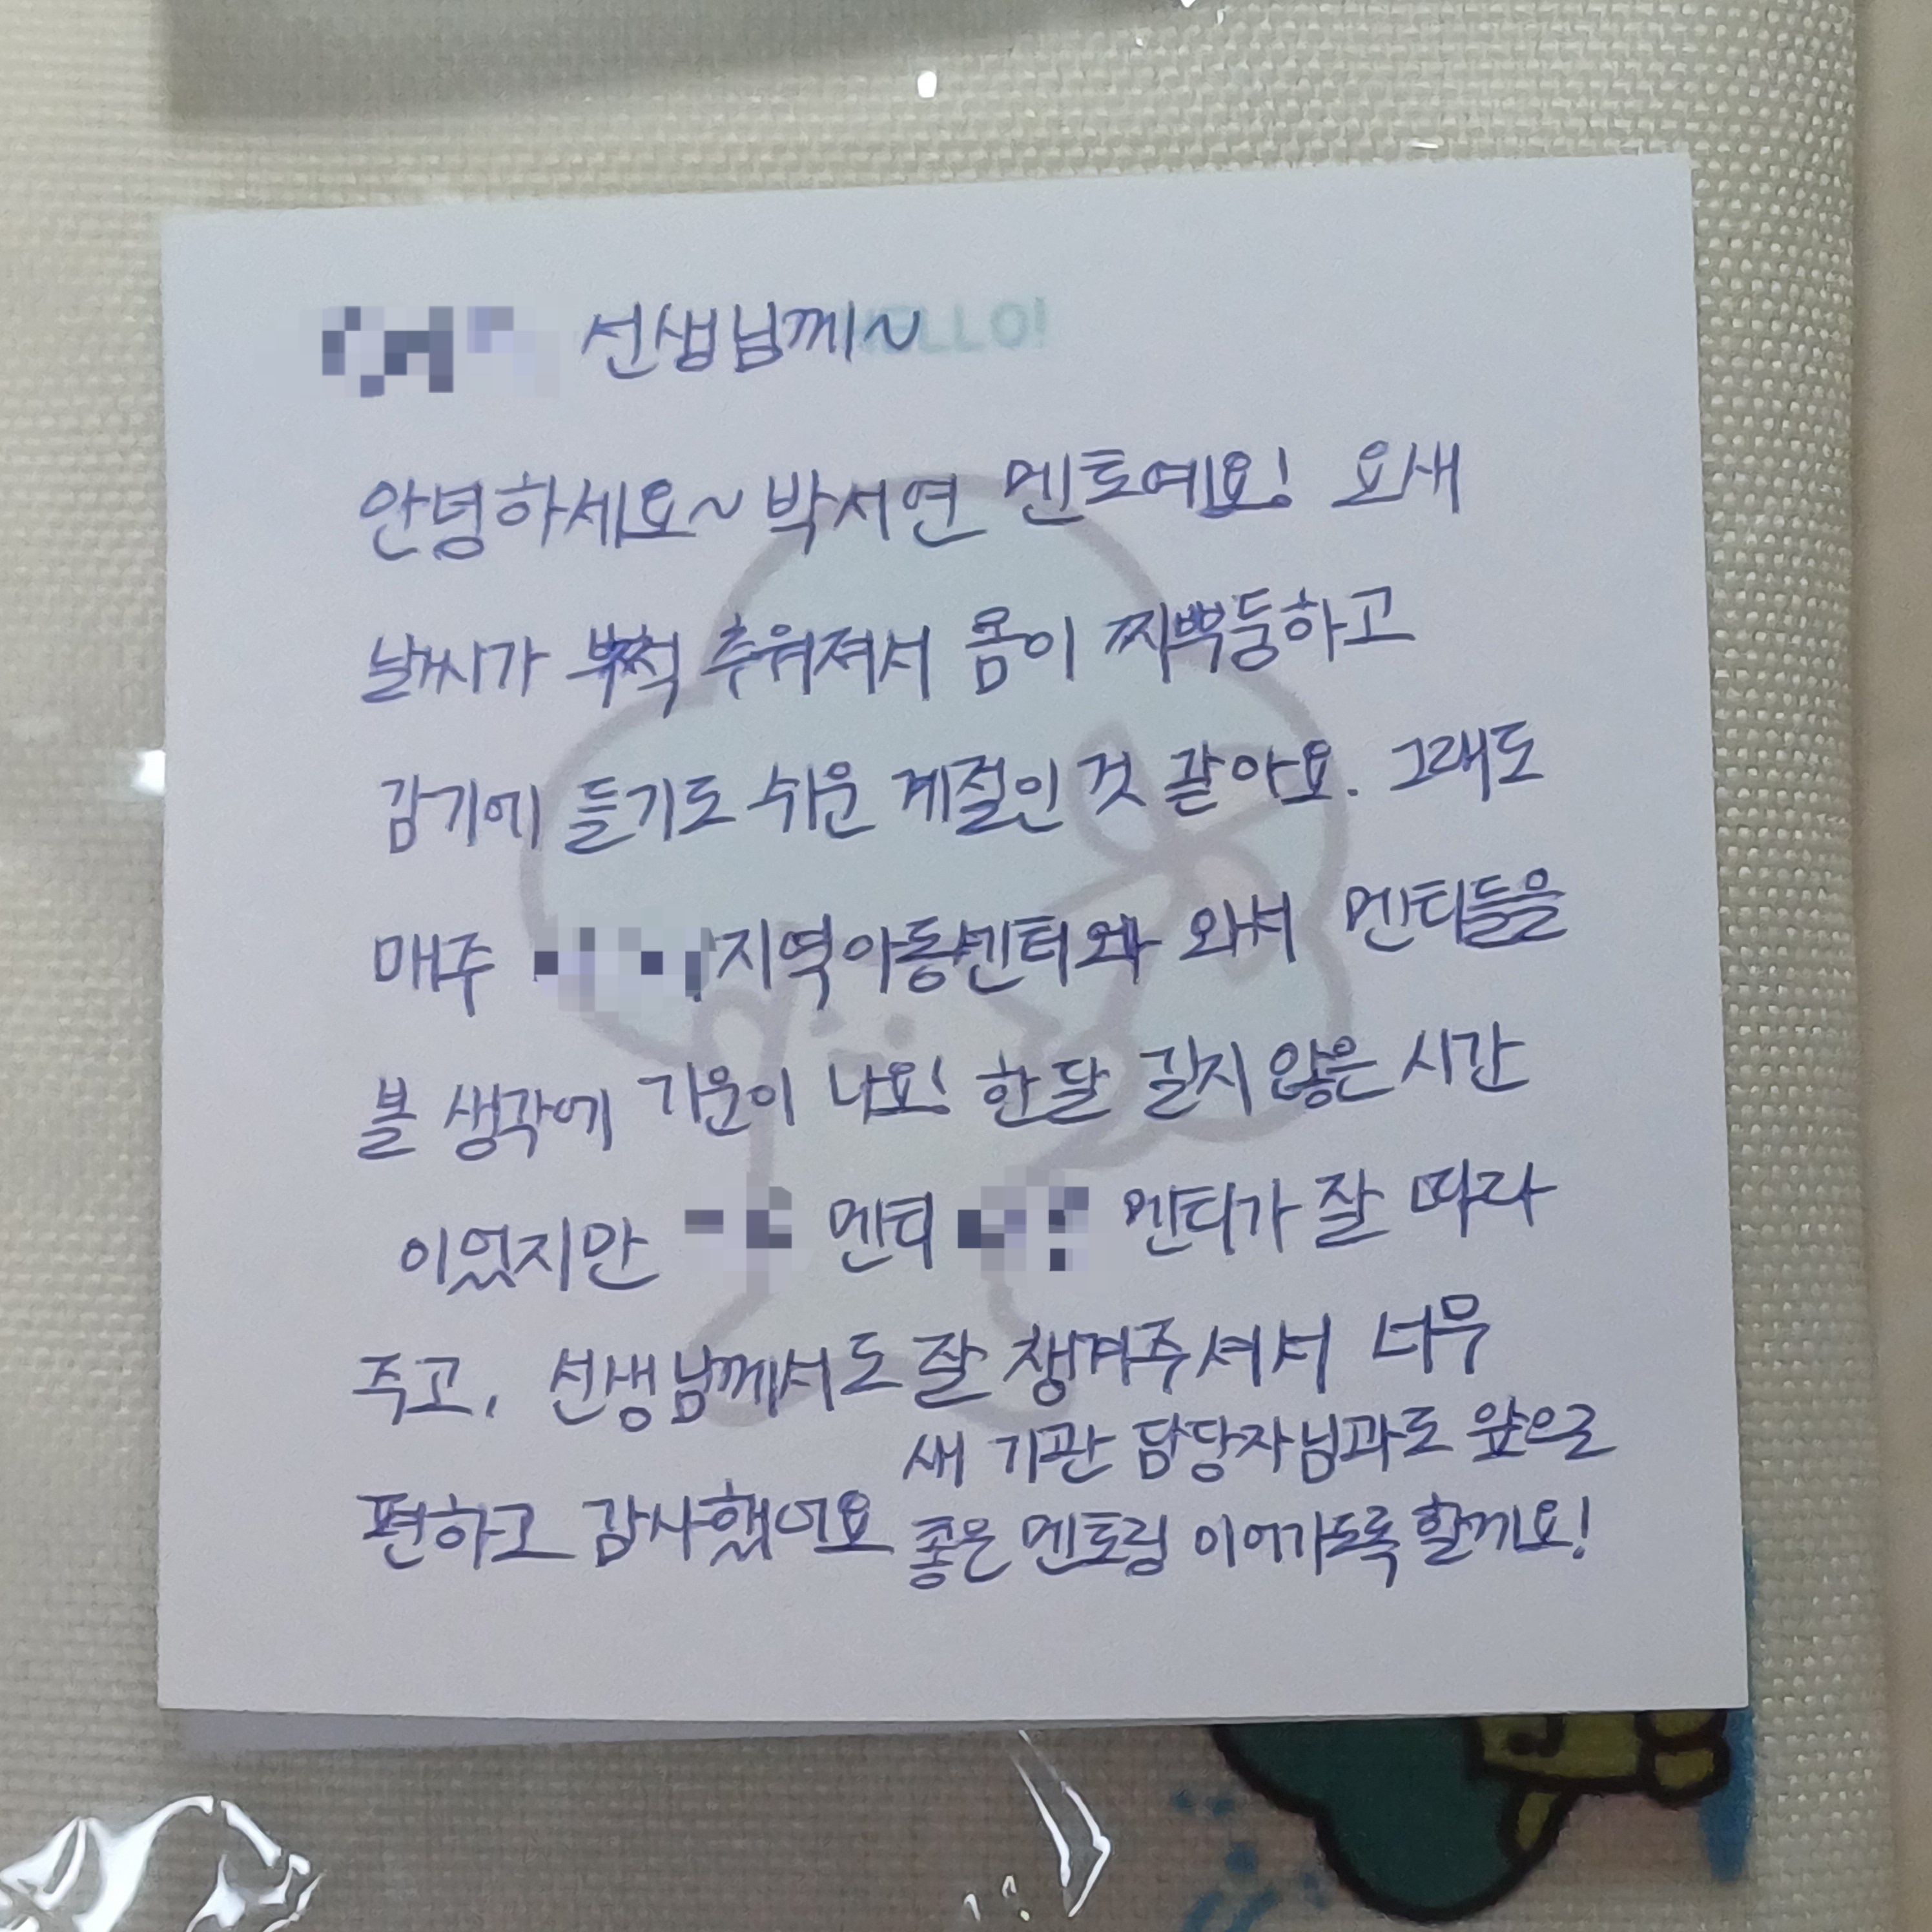 선생님께~
LLO!
안녕하세요~ 박서연 멘토예요! 요새
날씨가 부쩍 추워져서 몸이 찌뿌둥하고
감기에 들기도 쉬운 계절인 것 같아요. 그래도
매주 지역아동센터와 와서 멘티들을
볼 생각에 기운이 나요! 한달 길지 않은 시간
이었지만 멘티 멘티가 잘 따라
주고, 선생님께서도 잘 챙겨주셔서 너무
편하고 감사했어요
새 기관 담당자님과도 앞으로
좋은 멘토링 이어가도록 할께요!